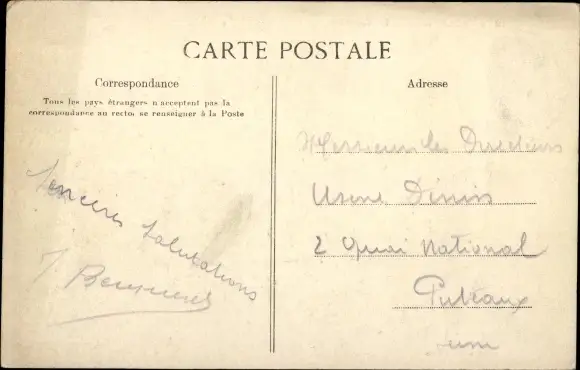 CARTE POSTALE
Correspondance
Tous les pays étrangers n acceptent pas la
correspondance au recto, se renseigner à la Poste
Sincères Salutations
J.
Adresse
Messieurs les Directeurs
Usine
2 Quai National
Puteaux